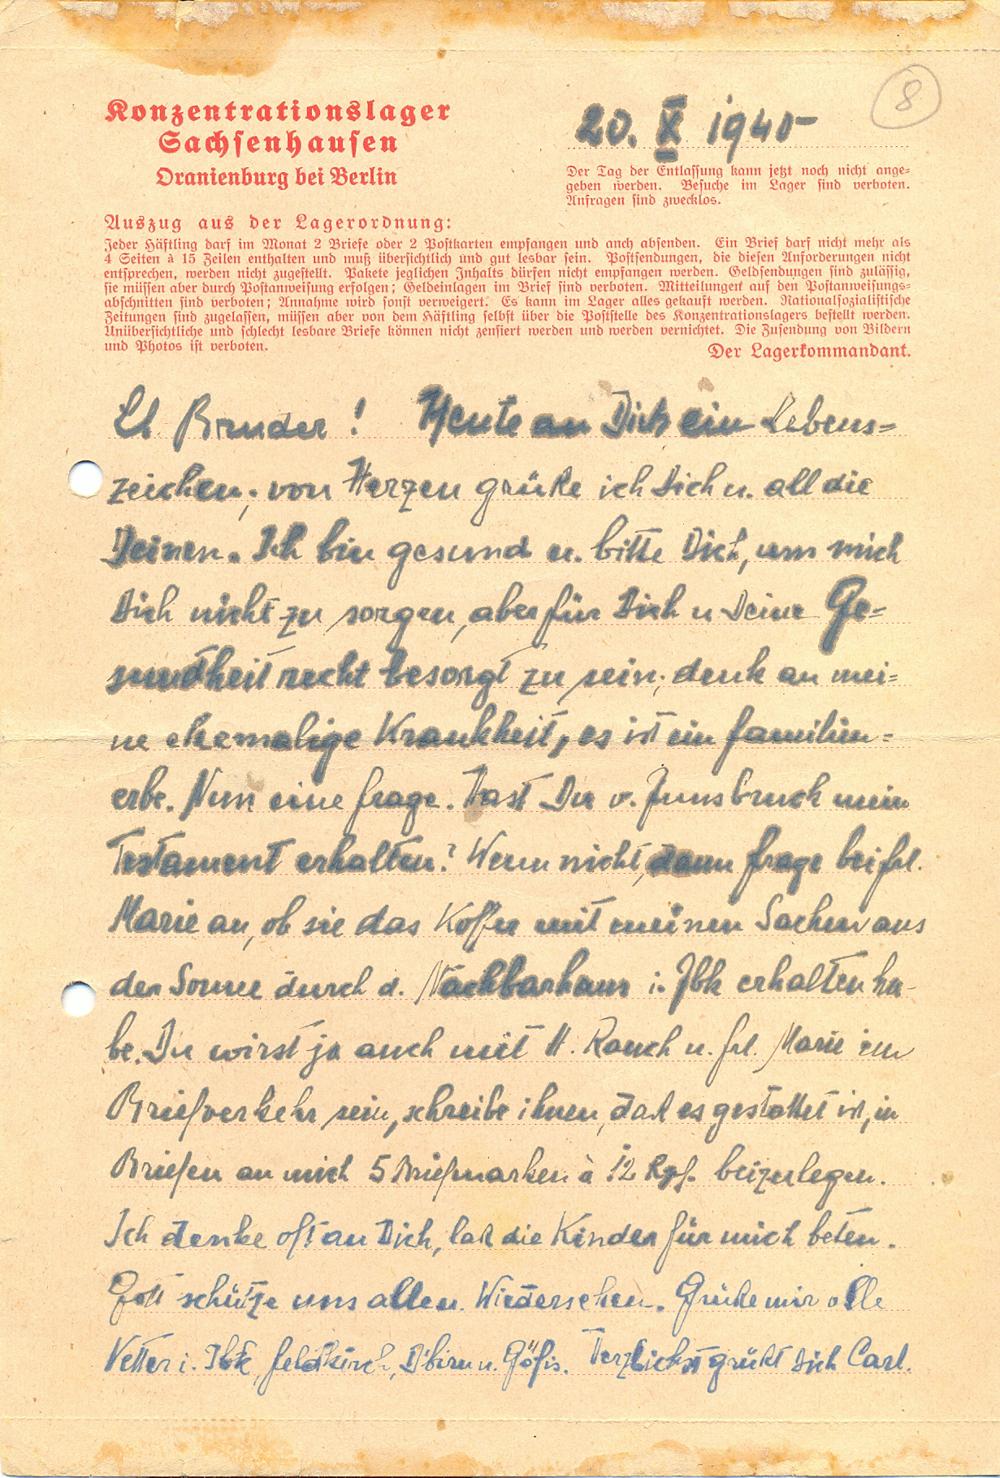 Konzentrationslager
Sachsenhausen
Oranienburg bei Berlin
20. X 1940
8
Der Tag der Entlassung kann jetzt noch nicht ange-
geben werden. Besuche im Lager sind verboten.
Anfragen sind zwecklos.
Auszug aus der Lagerordnung:
Jeder Häftling darf im Monat 2 Briefe oder 2 Postkarten empfangen und auch absenden. Ein Brief darf nicht mehr als
4 Seiten à 15 Zeilen enthalten und muß übersichtlich und gut lesbar sein. Postsendungen, die diesen Anforderungen nicht
entsprechen, werden nicht zugestellt. Pakete jeglichen Inhalts dürfen nicht empfangen werden. Geldsendungen sind zulässig,
sie müssen aber durch Postanweisung erfolgen; Geldeinlagen im Brief sind verboten. Mitteilungen auf den Postanweisungs-
abschnitten sind verboten; Annahme wird sonst verweigert. Es kann im Lager alles gekauft werden. Nationalsozialistische
Zeitungen sind zugelassen, müssen aber von dem Häftling selbst über die Poststelle des Konzentrationslagers bestellt werden.
Unübersichtliche und schlecht lesbare Briefe können nicht zensiert werden und werden vernichtet. Die Zusendung von Bildern
und Photos ist verboten.
Der Lagerkommandant.
Lb. Bruder! Heute an Dich ein Lebens=
zeichen; von Herzen grüße ich Dich u. all die
Deinen. Ich bin gesund u. bitte Dich, um mich
Dich nicht zu sorgen, aber für Dich u Deine Ge=
sundheit recht besorgt zu sein; denk an mei=
ne ehemalige Krankheit, es ist ein Familien=
erbe. Nun eine Frage. Hast Du v. Innsbruck mein
Testament erhalten? Wenn nicht, dann frage bei Frl.
Marie an, ob sie das Koffer mit meinen Sachen aus
der Sonne durch d. Nachbarhaus i. Ibk erhalten ha-
be. Du wirst ja auch mit H. Rauch u. Frl. Marie im
Briefverkehr sein, schreibe ihnen, daß es gestattet ist, in
Briefen an mich 5 Briefmarken à 12 Rpf. beizulegen.
Ich denke oft an Dich, laß die Kinder für mich beten.
Gott schütze uns allen. Wiedersehen. Grüße mir alle
Vetter i. Ibk, Feldkirch, D'birn u. Göfis. Herzlichst grüßt Dich Carl.